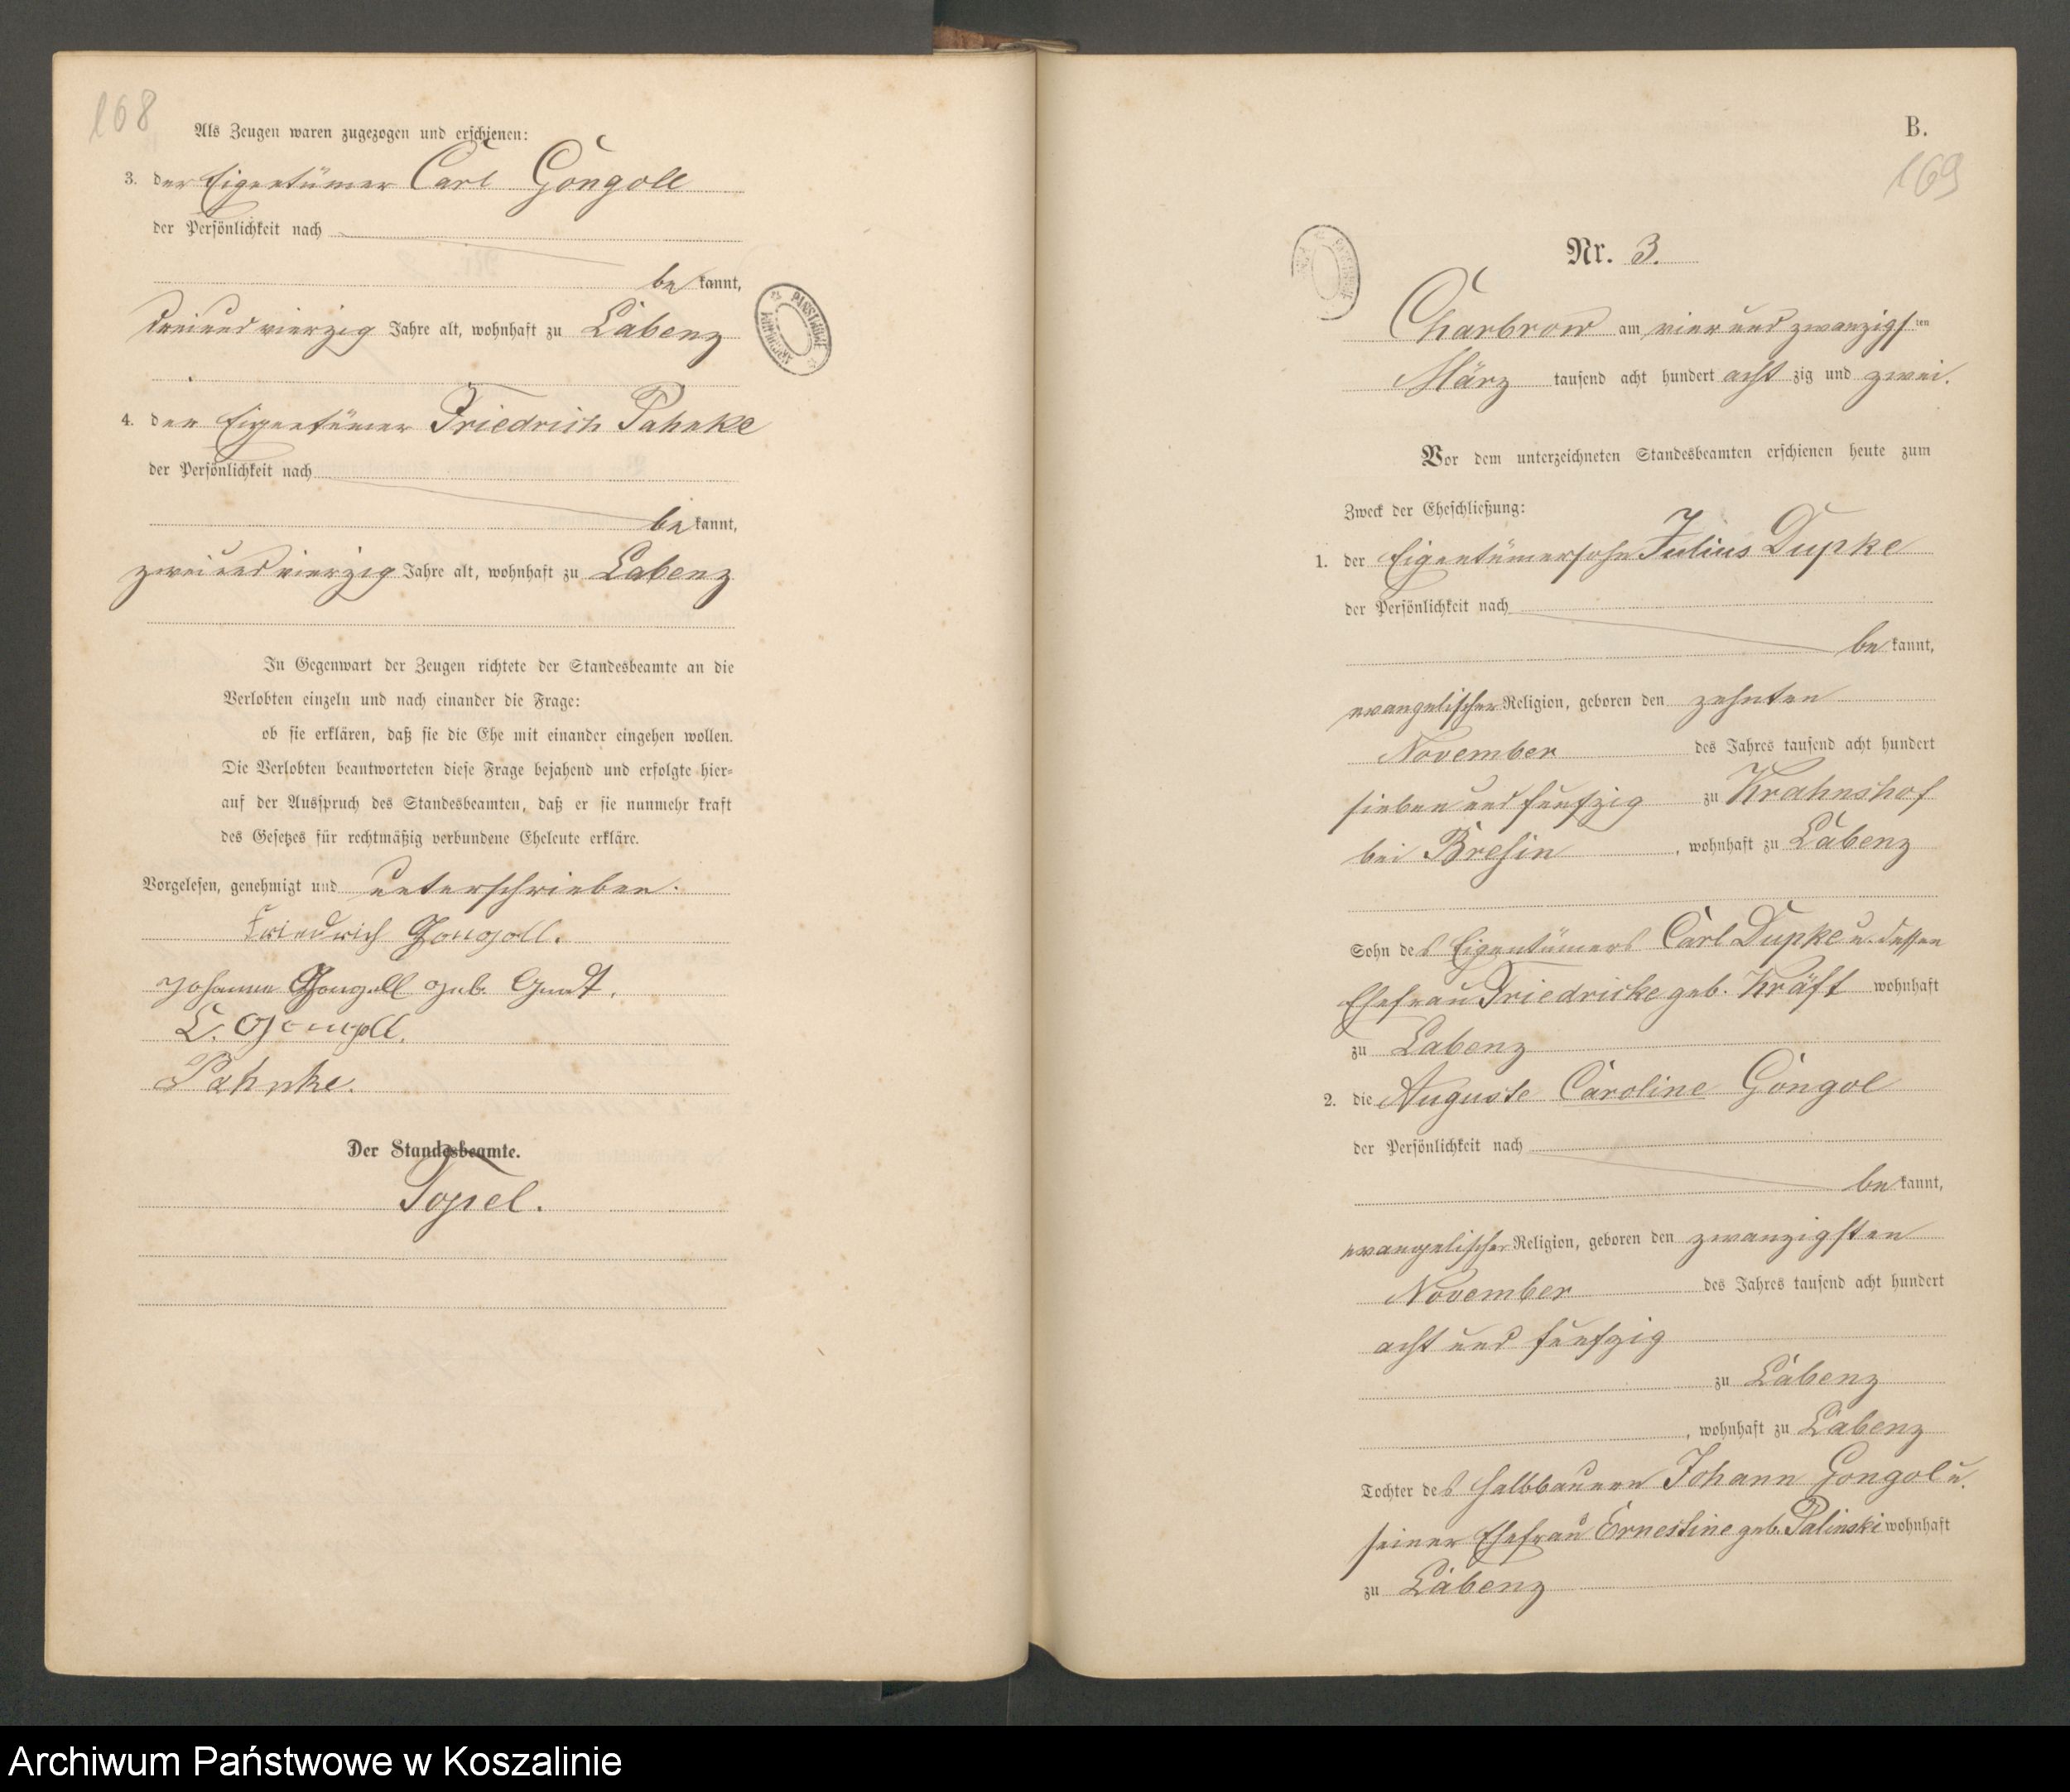 168
Als Zeugen waren zugezogen und erschienen:
3. der Eigentümer Carl Gongoll
der Persönlichkeit nach
be kannt,
dreiundvierzig Jahre alt, wohnhaft zu Labenz
4. der Eigentümer Friedrich Pahnke
der Persönlichkeit nach
be kannt,
zweiundvierzig Jahre alt, wohnhaft zu Labenz
In Gegenwart der Zeugen richtete der Standesbeamte an die
Verlobten einzeln und nach einander die Frage:
ob sie erklären, daß sie die Ehe mit einander eingehen wollen.
Die Verlobten beantworteten diese Frage bejahend und erfolgte hier-
auf der Ausspruch des Standesbeamten, daß er sie nunmehr kraft
des Gesetzes für rechtmäßig verbundene Eheleute erkläre.
Vorgelesen, genehmigt und unterschrieben.
Friedrich Gongoll.
Johanne Gongoll geb.
C. Gongoll.
Pahnke.
Der Standesbeamte.
Topel.
B.
169
Nr. 3.
Charbrow am vier und zwanzigsten
März tausend acht hundert acht zig und zwei.
Vor dem unterzeichneten Standesbeamten erschienen heute zum
Zweck der Eheschließung:
1. der Eigentümersohn Julius Dupke
der Persönlichkeit nach
be kannt,
evangelischer Religion, geboren den zehnten
November des Jahres tausend acht hundert
sieben und funfzig zu Krahnshof
bei Bresin, wohnhaft zu Labenz
Sohn des Eigentümers Carl Dupke u. dessen
Ehefrau Friedricke geb. Kräft wohnhaft
zu Labenz
2. die Auguste Caroline Gongol
der Persönlichkeit nach
be kannt,
evangelischer Religion, geboren den zwanzigsten
November des Jahres tausend acht hundert
acht und funfzig
zu Labenz
, wohnhaft zu Labenz
Tochter des Halbbauern Johann Gongol u.
seiner Ehefrau Ernestine geb. Palinski wohnhaft
zu Labenz
Archiwum Państwowe w Koszalinie